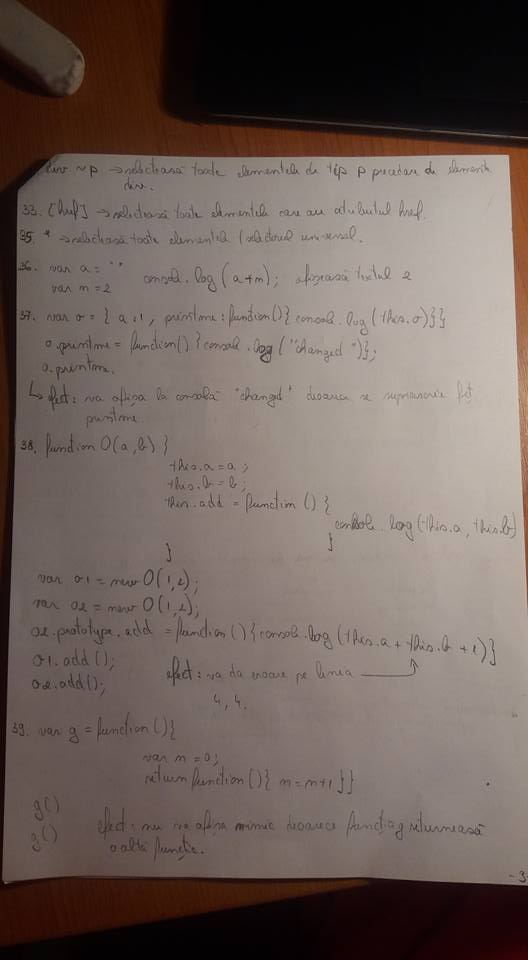 div ~ p → selectează toate elementele de tip p precedate de elemente
div.
33. [href] → selectează toate elementele care au atributul href.
35. * → selectează toate elementele / selectorul universal.
36. var a = "" console.log (a+m); afișează textul 2
var m = 2
37. var o = { a:1, printme: function(){ console.log (this.o)}}
o.printme = function() {console.log ("changed")};
o.printme.
↳ efect: va afișa la consolă "changed" deoarece se suprascrie fct
printme.
38. function O(a,b) {
this.a = a;
this.b = b;
this.add = function () {
console.log (this.a, this.b)
}
}
var o1 = new O(1,2);
var o2 = new O(1,2);
o2.prototype.add = function(){console.log(this.a + this.b + 1)}
o1.add();
o2.add(); efect: va da eroare pe linia
4, 4.
39. var g = function(){
var m = 0;
return function(){ m = m+1 }}
g()
g() efect: nu va afișa nimic deoarece funcția g returnează
o altă funcție.
- 3